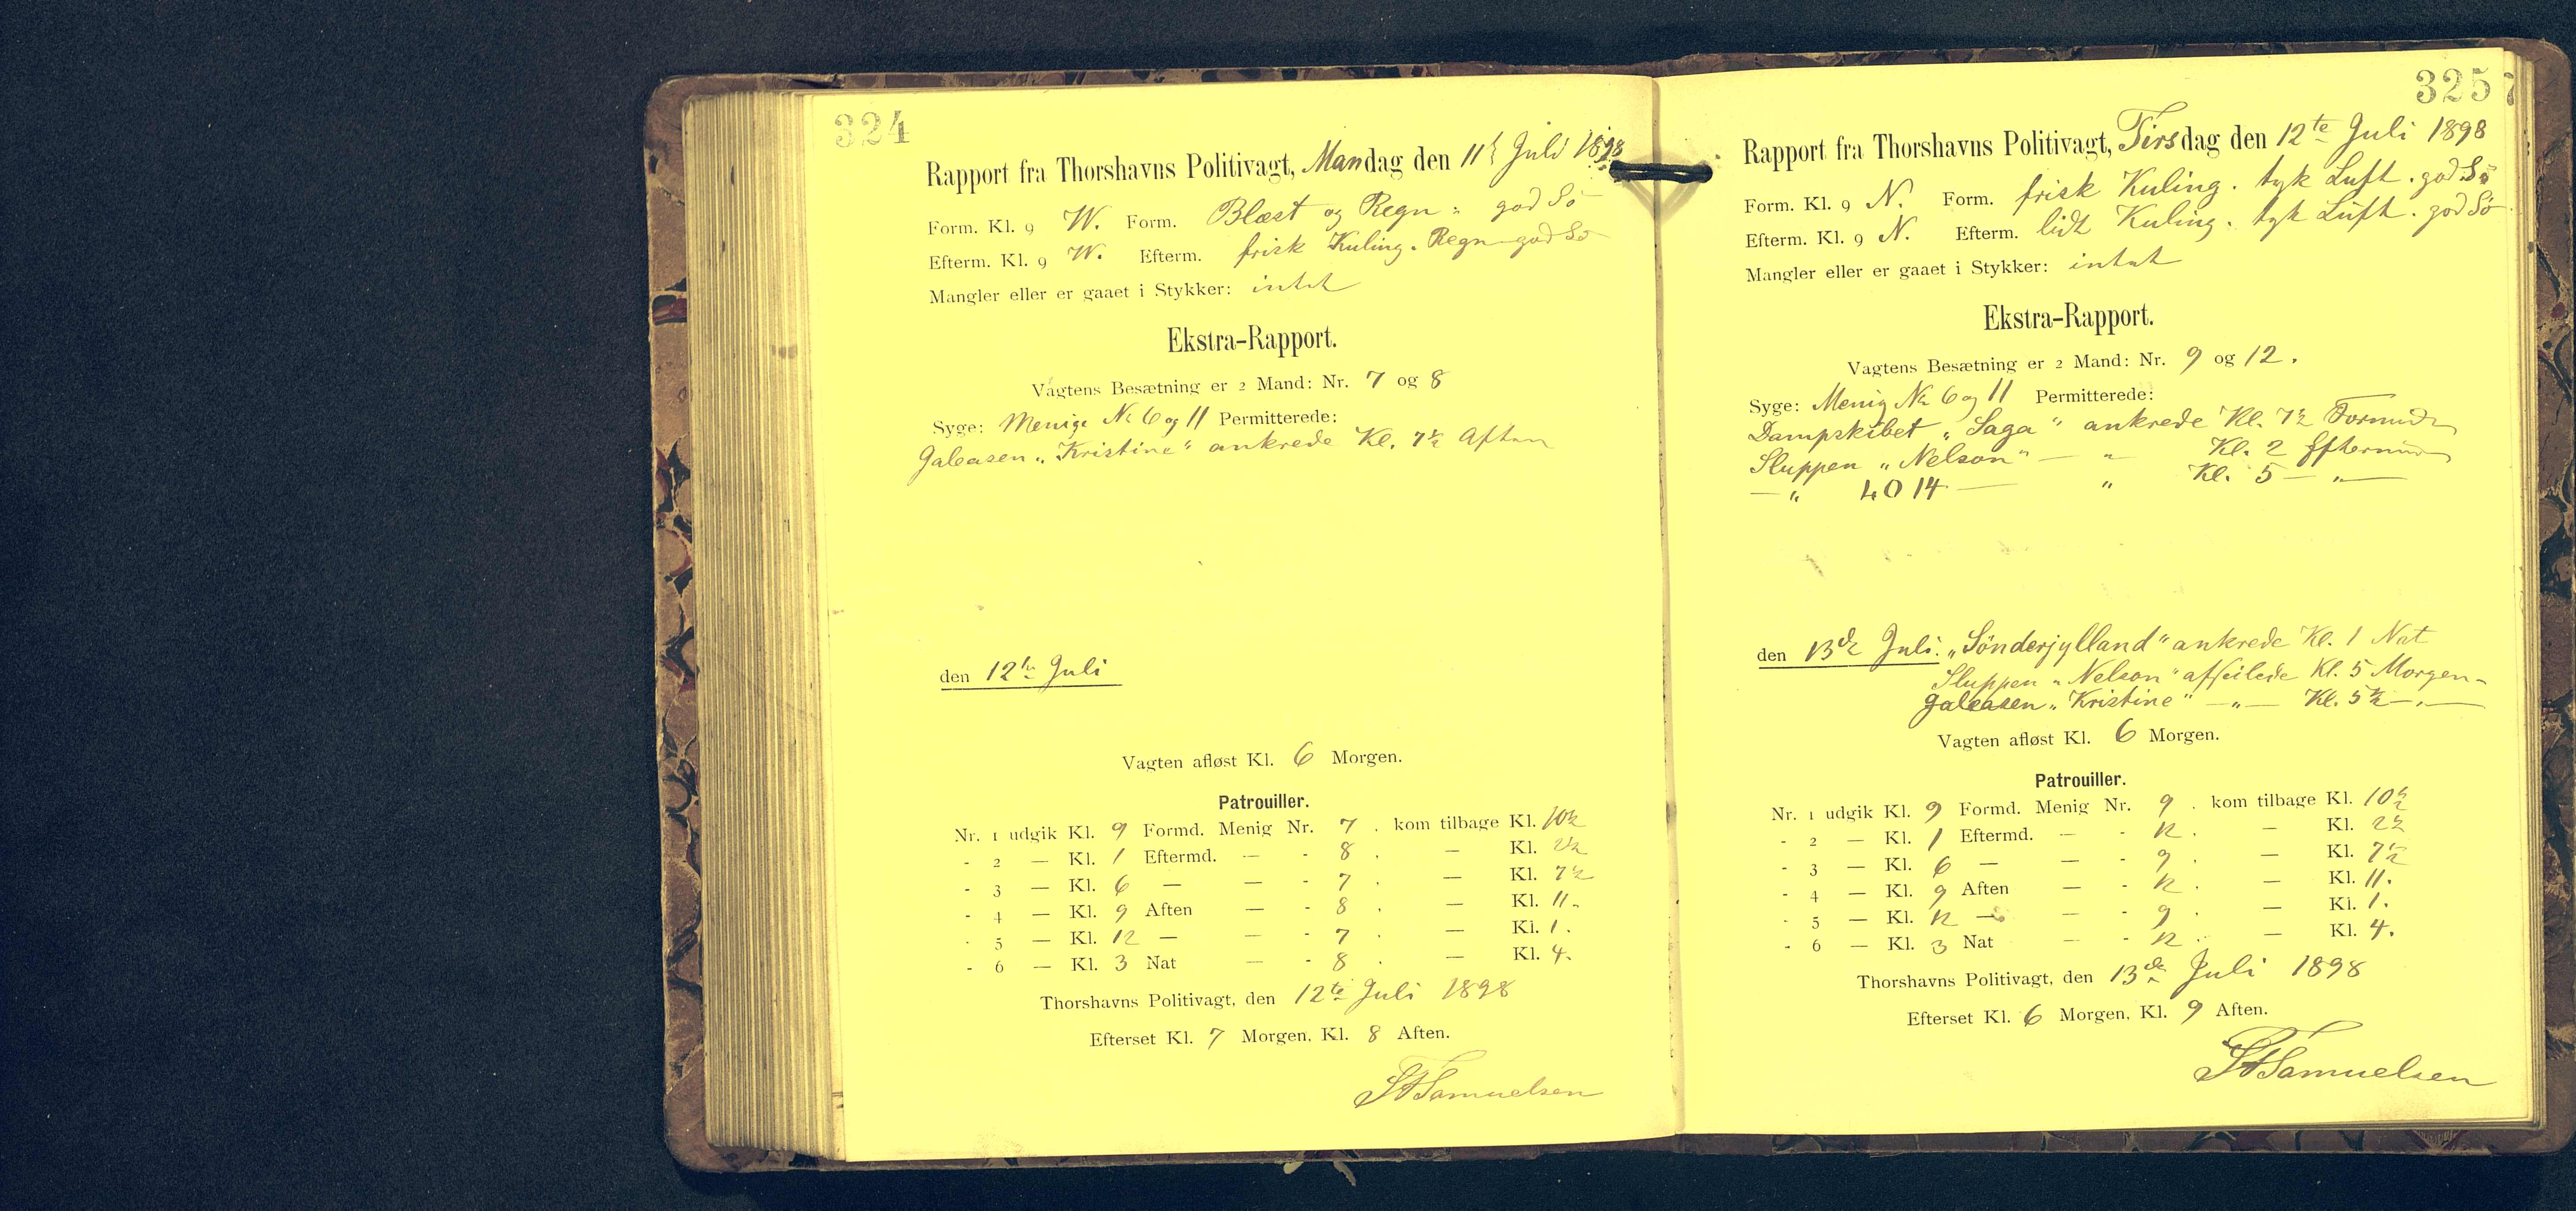 324
Rapport fra Thorshavns Politivagt, Mandag den 11te Juli 1898
Form. Kl. 9 W. Form. Blæst og Regn : god Sö
Efterm. Kl. 9 W. Efterm. frisk Kuling. Regn god Sö
Mangler eller er gaaet i Stykker: intet
Ekstra-Rapport.
Vagtens Besætning er 2 Mand: Nr. 7 og 8
Syge: Menige No 6 og 11 Permitterede:
Galeasen „Kristine" ankrede Kl. 7½ Aften
den 12te Juli
Vagten afløst Kl. 6 Morgen.
Patrouiller.
Nr. 1 udgik Kl. 9 Formd. Menig Nr. 7 . kom tilbage Kl. 10½
- 2 — Kl. 1 Eftermd. — - 8 . — Kl. 2½
- 3 — Kl. 6 — — - 7 . — Kl. 7½
- 4 — Kl. 9 Aften — - 8 . — Kl. 11.
- 5 — Kl. 12 — — - 7 . — Kl. 1.
- 6 — Kl. 3 Nat — - 8 . — Kl. 4.
Thorshavns Politivagt, den 12te Juli 1898
Efterset Kl. 7 Morgen, Kl. 8 Aften.
Samuelsen
325
Rapport fra Thorshavns Politivagt, Tirsdag den 12te Juli 1898
Form. Kl. 9 N. Form. frisk Kuling. tyk Luft. god Sö
Efterm. Kl. 9 N. Efterm. lidt Kuling. tyk Luft. god Sö
Mangler eller er gaaet i Stykker: intet
Ekstra-Rapport.
Vagtens Besætning er 2 Mand: Nr. 9 og 12.
Syge: Menig No 6 og 11 Permitterede:
Dampskibet „Saga" ankrede Kl. 7½ Formid
Sluppen „Nelson" — „ Kl. 2 Eftermid
— „ LO 14 — „ Kl. 5 — „ —
den 13de Juli: „Sönderjylland" ankrede Kl. 1 Nat
Sluppen „Nelson" afseilede Kl. 5 Morgen
Galeasen „Kristine" — „ — Kl. 5½ — „ —
Vagten afløst Kl. 6 Morgen.
Patrouiller.
Nr. 1 udgik Kl. 9 Formd. Menig Nr. 9 . kom tilbage Kl. 10½
- 2 — Kl. 1 Eftermd. — - 12 . — Kl. 2½
- 3 — Kl. 6 — — - 9 . — Kl. 7½
- 4 — Kl. 9 Aften — - 12 . — Kl. 11.
- 5 — Kl. 12 — — - 9 . — Kl. 1.
- 6 — Kl. 3 Nat — - 12 . — Kl. 4.
Thorshavns Politivagt, den 13de Juli 1898
Efterset Kl. 6 Morgen, Kl. 9 Aften.
Samuelsen